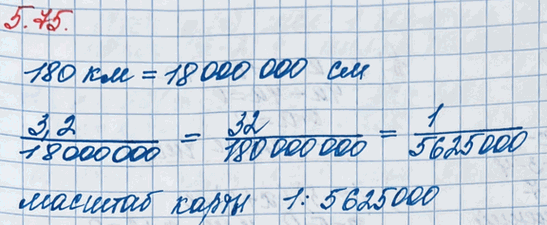 5.75.
180 км = 18 000 000 см
3,2/18000000 = 32/180 000 000 = 1/5625000
масштаб карты 1: 5625000